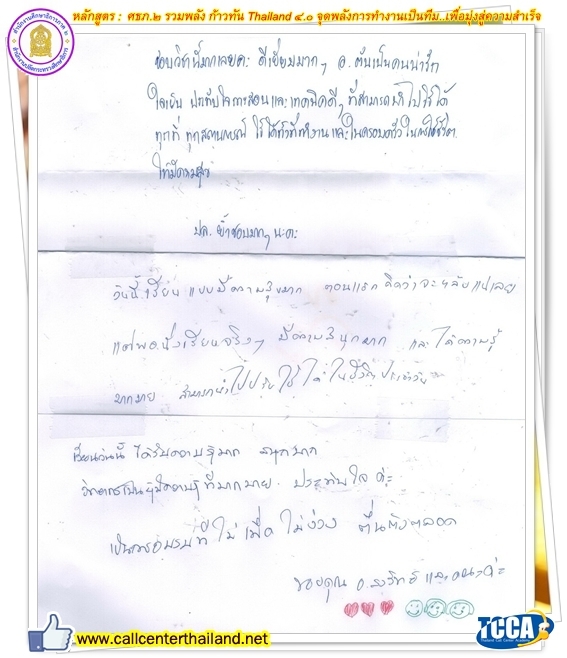 หลักสูตร : ศธภ.๒ รวมพลัง ก้าวทัน Thailand ๔.๐ จุดพลังการทำงานเป็นทีม..เพื่อมุ่งสู่ความสำเร็จ
ชอบวิชานี้มากเลยค่ะ ดีเยี่ยมมากๆ อ.ต้นเป็นคนน่ารัก
ใจเย็น ประทับใจการสอนและเทคนิคดีๆ ที่สามารถนำไปใช้ได้
ทุกที่ ทุกสถานการณ์ ใช้ได้ทั้งที่ทำงานและในครอบครัว ในการใช้ชีวิต
ให้มีความสุข
ปล. ย้ำชอบมากๆ นะคะ
วันนี้เรียน แบบมีความสุขมาก ตอนแรก คิดว่าจะหลับแน่เลย
แต่พอนั่งเรียนจริงๆ มีความสนุกมาก และ ได้ความรู้
มากมาย สามารถนำไปปรับใช้ได้ในชีวิตประจำวัน
เรียนวันนี้ ได้รับความรู้มาก สนุกมาก
วิทยากรเป็นผู้มีความรู้ที่มากมาย. ประทับใจ ค่ะ
เป็นการอบรมที่ ไม่เบื่อ ไม่ง่วง ตื่นตัวตลอด
ขอบคุณ อ. และคณะค่ะ
www.callcenterthailand.net
TCCA
Thailand Call Center Academy